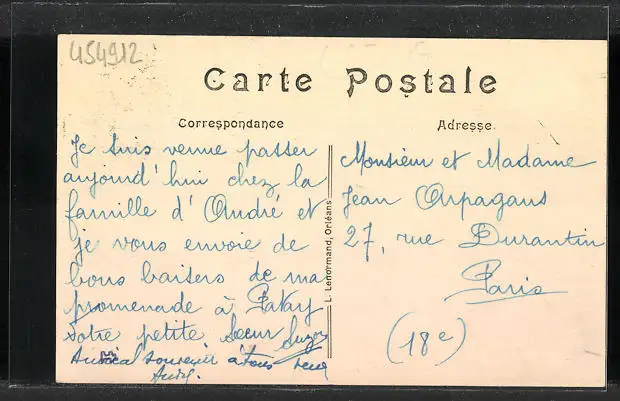 454912
Carte Postale
Correspondance
Adresse
Je suis venue passer
aujourd'hui chez la
famille d'André et
je vous envoie de
bons baisers de ma
promenade à Patay
Votre petite Soeur Suzon
Amical souvenir à tous
André.
L. Lenormand, Orléans
Monsieur et Madame
Jean Arpagaus
27, rue Durantin
Paris
(18e)